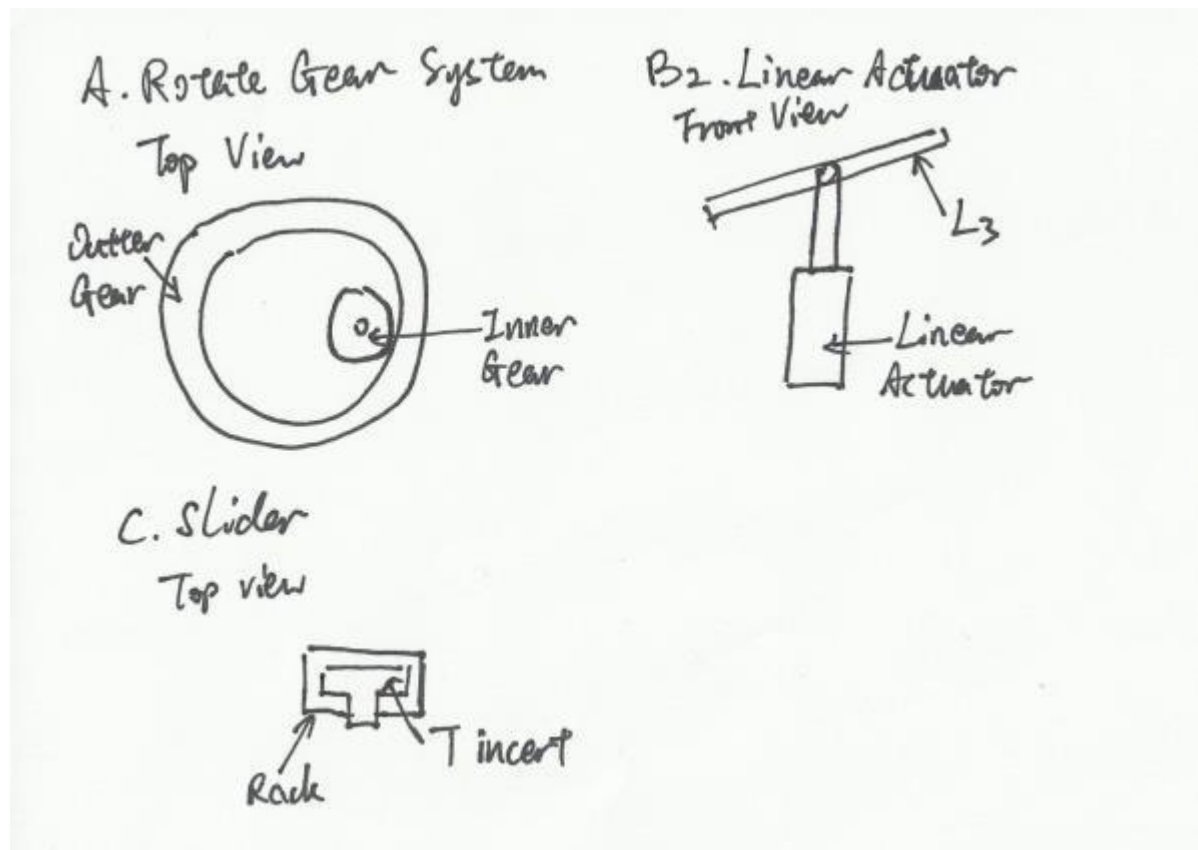 A. Rotate Gear System
Top View
Outter
Gear
Inner
Gear
B2. Linear Actuator
Front View
L3
Linear
Actuator
C. Slider
Top view
T incert
Rack